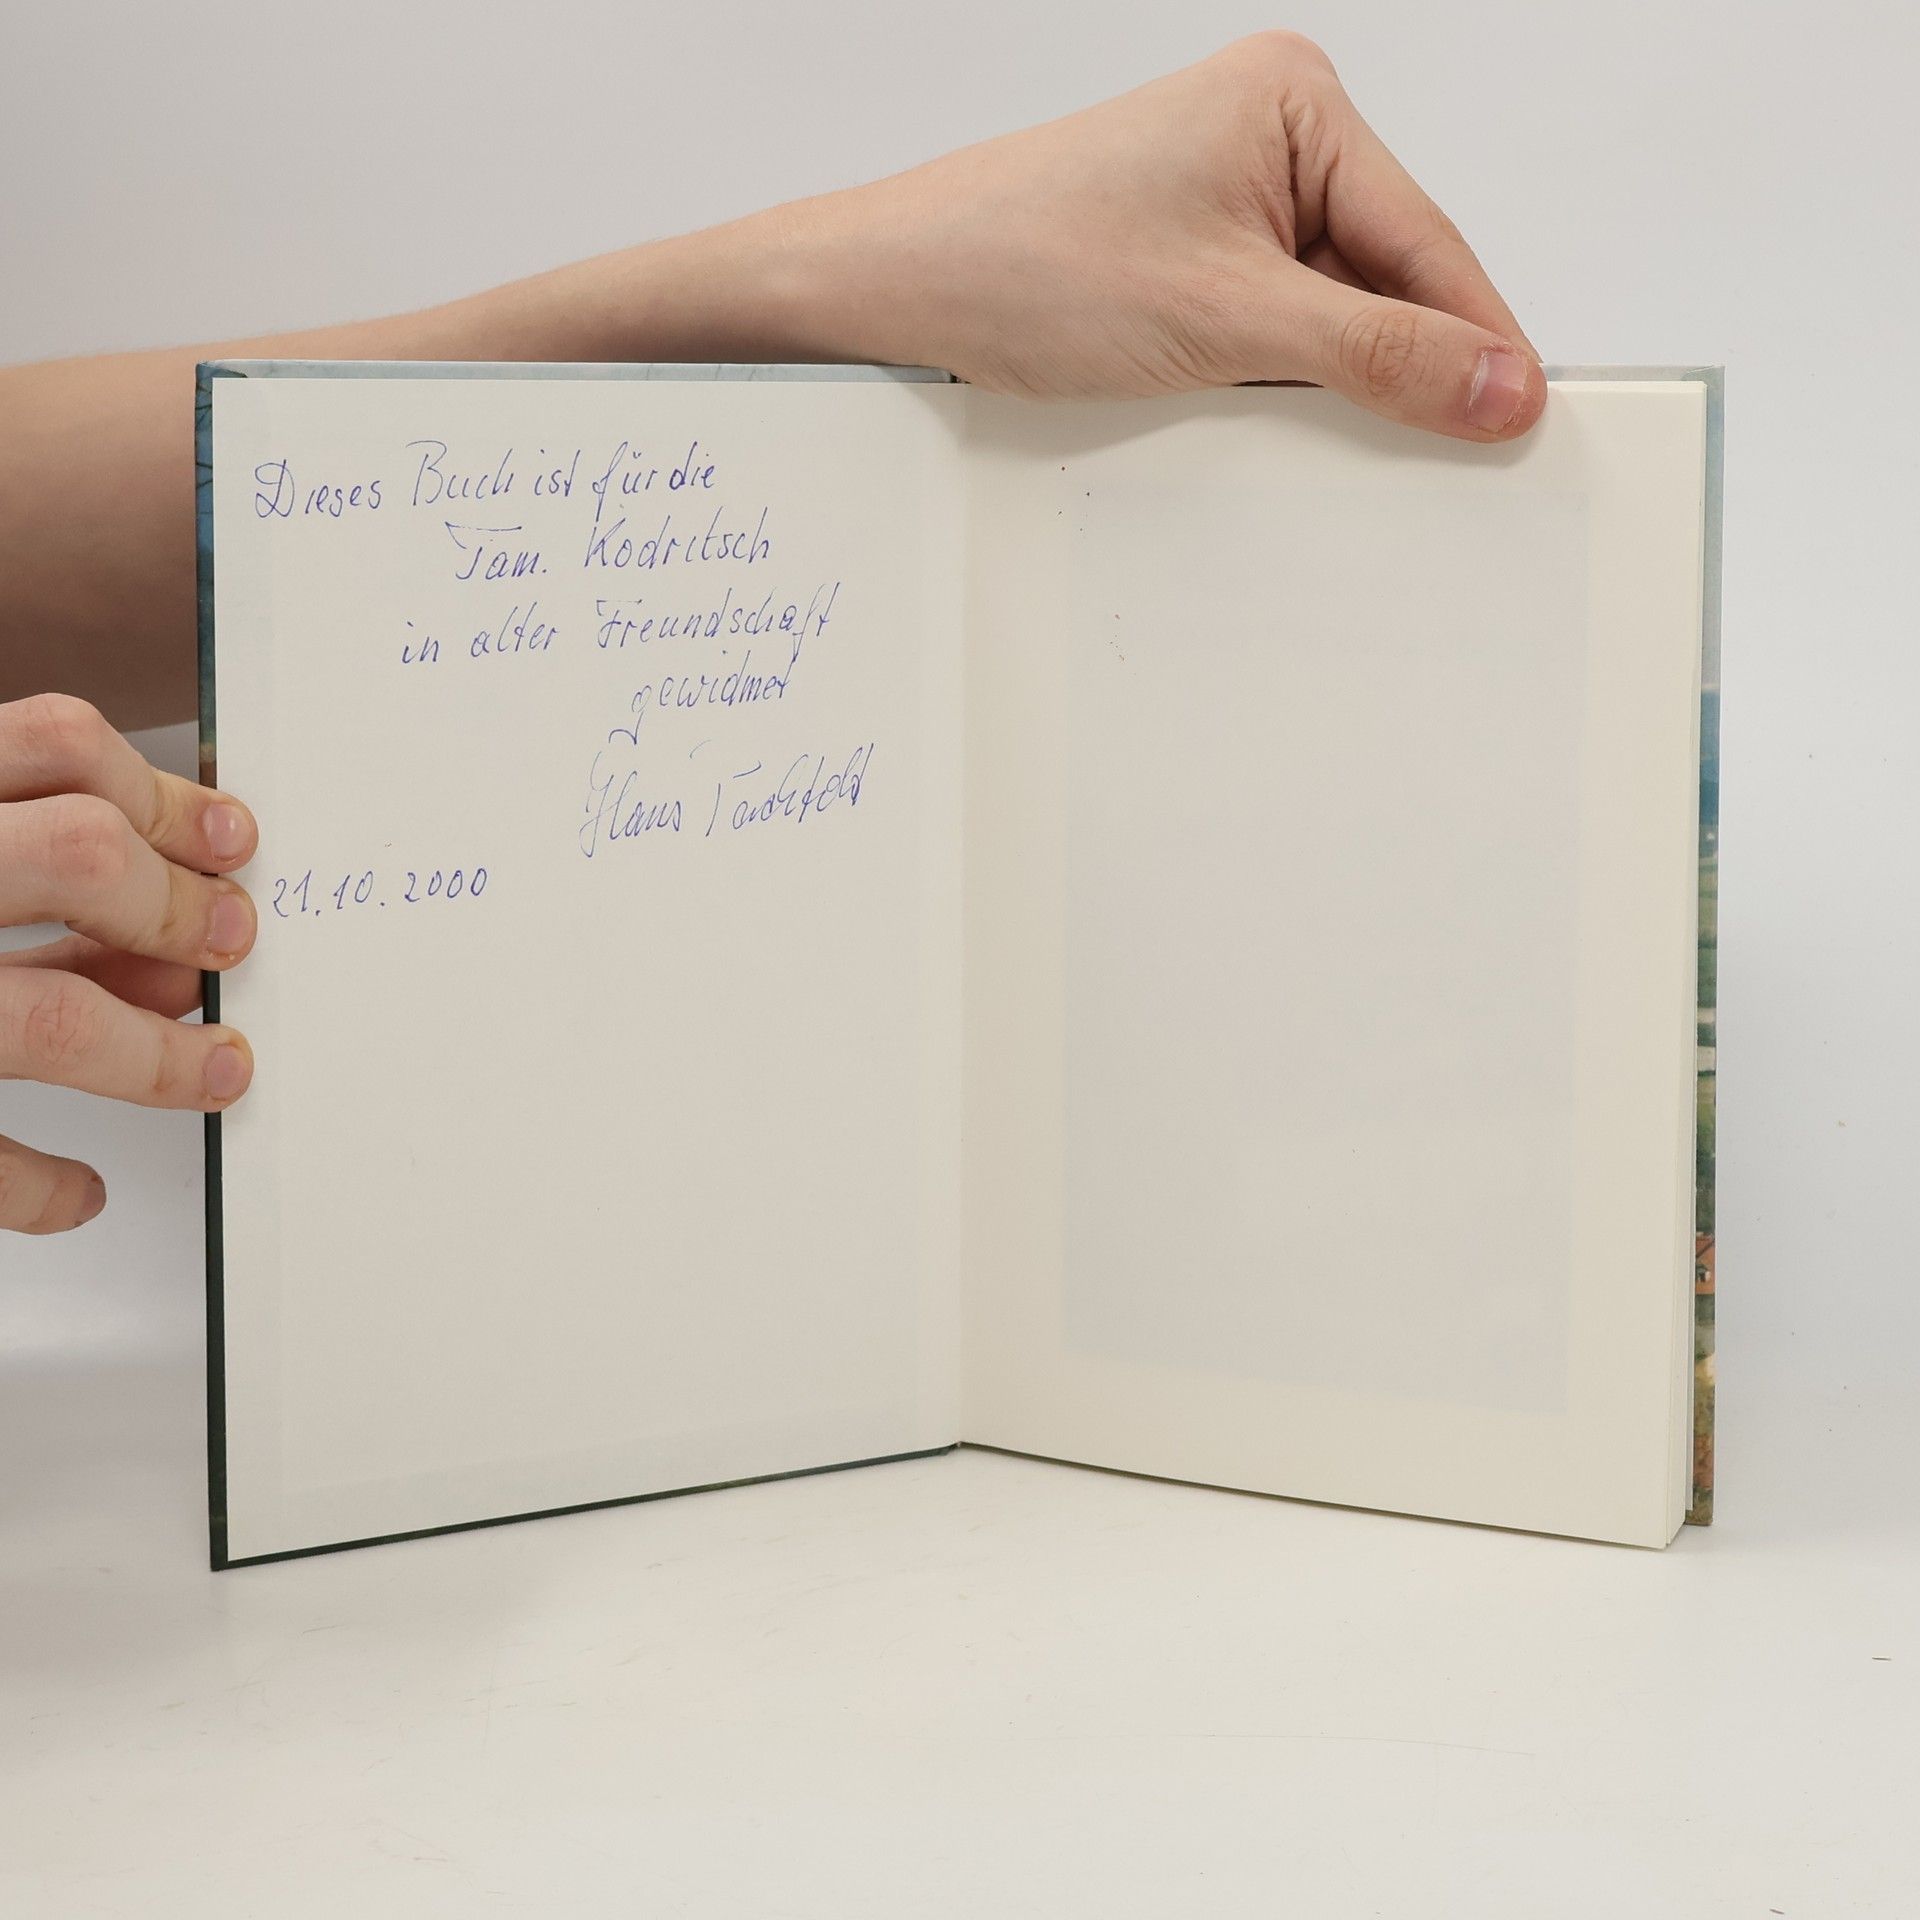 Dieses Buch ist für die
Fam. Kodritsch
in alter Freundschaft
gewidmet
Hans
21.10.2000